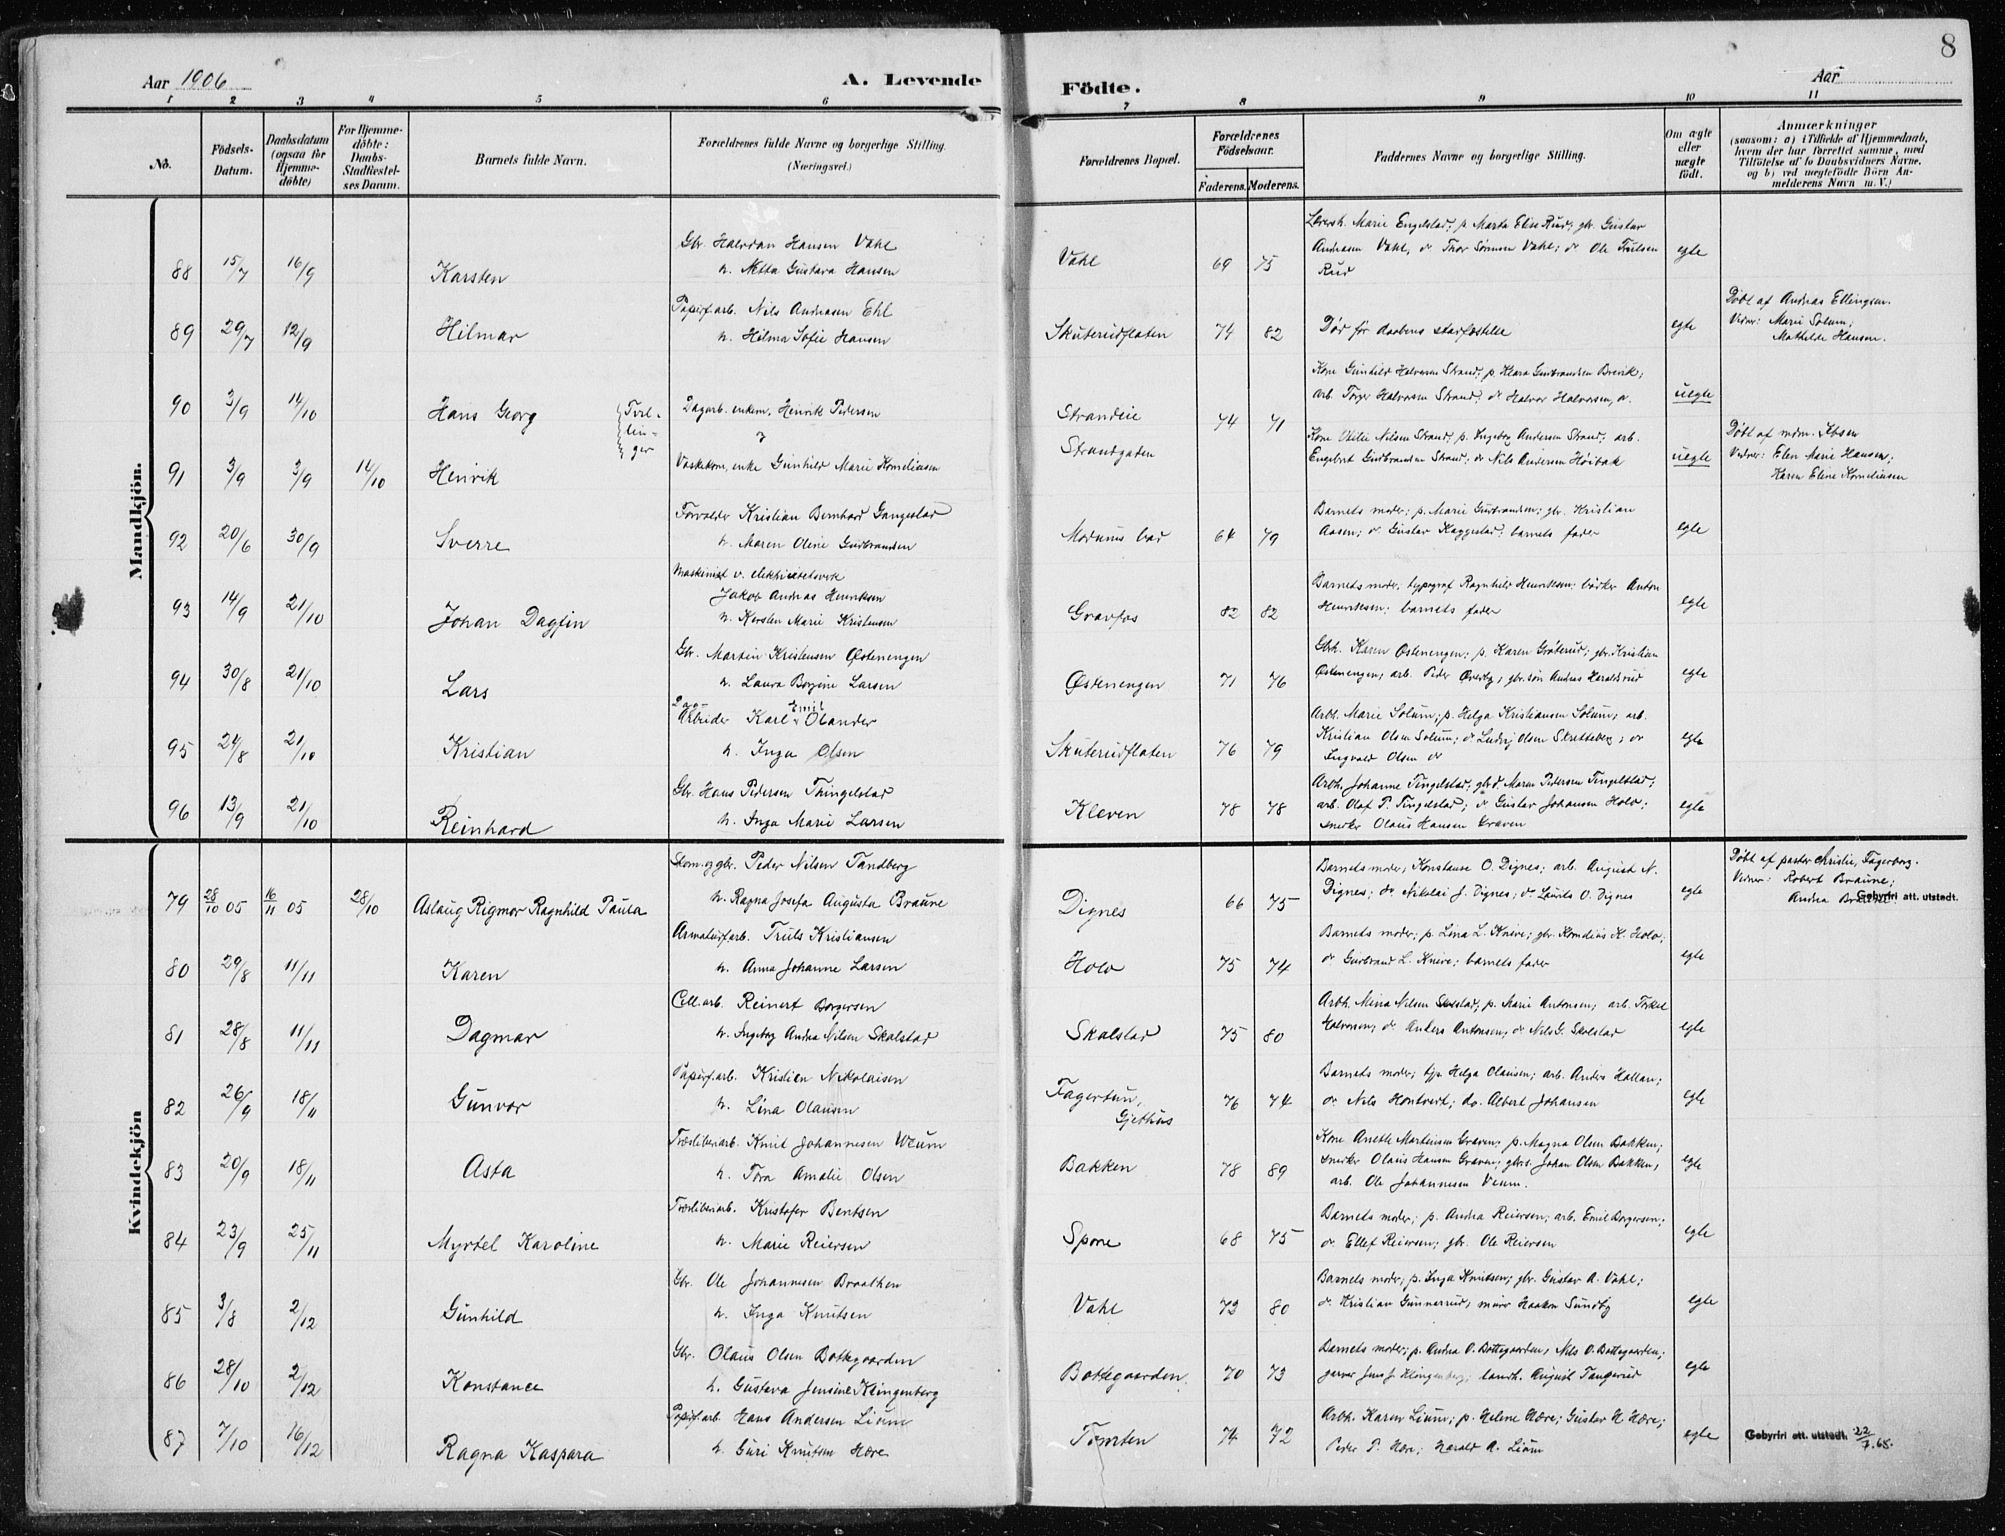 8
Aar 1906
A. Levende
Födte.
Aar
1 2 3 4 5 6 7 8 9 10 11
No.
Födsels-
Datum.
Daabsdatum
(ogsaa for
Hjemme-
döbte)
For Hjemme-
döbte:
Daabs-
Stadfæstel-
ses Datum.
Barnets fulde Navn.
Forældrenes fulde Navne og borgerlige Stilling.
(Næringsvei.)
Forældrenes Bopæl.
Forældrenes
Födselsaar.
Faderens. Moderens.
Faddernes Navne og borgerlige Stilling.
Om ægte
eller
uægte
födt.
Anmærkninger
(saasom: a) i Tilfælde af Hjemmedaab,
hvem der har forrettet samme, med
Tilföielse af to Daabsvidners Navne,
og b) ved uægtefödte Börn An-
melderens Navn m. V.)
Mandkjön.
88 15/7 16/9 Karsten
Gbr. Halvdan Hansen Vahl
h. Netta Gustava Hansen
Vahl 69 75
Marie Engelstad, p. Marta Elise Rud, gbr. Gustav
Andreasen Vahl, do Thor Sørensen Vahl; do Ole Trulsen
Rud
egte
89 29/7 12/9 Hilmar
Papirf.arb. Nils Andreasen Ehl
h. Hilma Sofie Hansen
Skuterudflaten 74 82
Død før daabens stadfæstelse
egte
Døbt af Andreas Ellingsen.
Vidner: Marie Solum;
Mathilde Hansen.
90 3/9 14/10 Hans Georg
Tvil-
lin-
ger
Dagarb. enkem. Henrik Pedersen
Strandeie 74 71
Kone Gunhild Halvorsen Strand; p. Klara Gudbrandsen Brevik;
arb. Torger Halvorsen Strand; do Halvor Halvorsen, do.
uegte
91 3/9 3/9 14/10 Henrik
Vaskekone, enke Gunhild Marie Korneliusen
Strandgaten
Kone Otilie Nilsen Strand, p. Ingeborg Andersen Strand; arb.
Engebret Gudbrandsen Strand; do Nils Andersen Høibak
uegte
Døbt af mdm. Ibsen
Vidner: Elen Marie Hansen;
Karen Eline Korneliusen
92 20/6 30/9 Sverre
Forvalder Kristian Bernhard Gangestad
h. Maren Oline Gudbrandsen
Modums bad 64 79
Barnets moder; p. Marie Gudbrandsen; gbr. Kristian
Aasen; do Gustav Kaggestad; barnets fader
egte
93 14/9 21/10 Johan Dagfin
Maskinist v. elektricitetsverk
Jakob Andreas Henriksen
h. Karsten Marie Kristensen
Gravfos 82 82
Barnets moder, typograf Ragnhild Henriksen; bødker Anton
Henriksen; barnets fader
egte
94 30/8 21/10 Lars
Gbr. Martin Kristensen Østenengen
h. Laura Borgine Larsen
Østenengen 71 76
Gbk. Karen Østenengen; p. Karen Grøterud; gbr. Kristian
Østenengen, arb. Peder Øverby; gbr.søn Andreas Haraldsrud
egte
95 24/8 21/10 Kristian
Dag-
Arbeider Karl Emil Olander
h. Inga Olsen
Skuterudflaten 76 79
Arbk. Marie Solum; p. Helga Kristiansen Solum; arb.
Kristian Olsen Solum; do Ludvig Olsen Skutteberg; do
Ingvald Olsen do
egte
96 13/9 21/10 Reinhard
Gbr. Hans Pedersen Thingelstad
h. Inga Marie Larsen
Kleven 78 78
Arbk. Johanne Tingelstad; gbrd. Maren Pedersen Tingelstad;
arb. Olaf P. Tingelstad; do Gustav Johansen Holo;
snedker Olaus Hansen Graven
egte
Kvindekjön
79 28/10 05 16/11 05 28/10 Aslaug Rigmor Ragnhild Paula
Skom. og gbr. Peder Nilsen Tandberg
h. Ragna Josefa Augusta Braune
Dignes 66 75
Barnets moder; Konstanse O. Dignes; arb. August N.
Dignes; do Nikolai J. Dignes, do Laurits O. Dignes
egte
Døbt af pastor Christie, Fagerborg.
Vidner: Robert Braune;
Andrea
Gebyrfri att. utstedt.
80 29/8 11/11 Karen
Armaturf.arb. Truls Kristiansen
h. Anna Johanne Larsen
Holo 75 74
Barnets moder; p. Lina L. Knive; gbr. Kornelius K. Holo;
do Gudbrand L. Knive; barnets fader
egte
81 28/8 11/11 Dagmar
Cell.arb. Reinert Borgersen
h. Ingeborg Andrea Nilsen Skalstad
Skalstad 75 80
Arbk. Mina Nilsen Skalstad; p. Marie Antonsen; arb. Torkel
Halvorsen; do Anders Antonsen, do Nils G. Skalstad
egte
82 26/9 18/11 Gunvor
Papirf.arb. Kristian Nikolaisen
h. Lina Olausen
Fagertun,
Gjethus
76 74
Barnets moder; tjp. Helga Olausen; arb. Anders Hallan;
do Nils Hontvert; do. Albert Johansen
egte
83 20/9 18/11 Asta
Træsliberiarb. Knut Johannesen Weum
h. Tora Amalie Olsen
Bakken 78 89
Kone Anette Martinsen Graven; p. Magna Olsen Bakken;
snedker Olaus Hansen Graven; gbrs. Johan Olsen Bakken,
arb. Ole Johannesen Veum.
egte
84 23/9 25/11 Myrtel Karoline
Træsliberiarb. Kristofer Bentsen
h. Marie Reiersen
Spone 68 75
Barnets moder; p. Andrea Reiersen; arb. Emil Borgersen;
do. Ellef Reiersen; gbr. Ole Reiersen
egte
85 3/8 2/12 Gunhild
Gbr. Ole Johannesen Braathen
h. Inga Knutsen
Vahl 73 80
Barnets moder; p. Inga Knutsen; gbr. Gustav A. Vahl;
do. Kristian Gunnerud; murer Haakon Sundby
egte
86 28/10 2/12 Konstance
Gbr. Olaus Olsen Bottegaarden
h. Gustava Jensine Klingenberg
Bottegaarden 70 73
Barnets moder; p. Andrea O. Bottegaarden, Nils O. Bottegaarden;
garver Jens J. Klingenberg; landh. August Tangerud
egte
87 7/10 16/12 Ragna Kaspara
Papirf.arb. Hans Andersen Lium
h. Guri Knutsen Hære
Tomten 74 72
Arbk. Karen Lium; p. Helene Hære; Gustav H. Hære;
Peder P. Hære; Harald A. Lium
egte
Gebyrfri att. utstedt. 22/7.65.